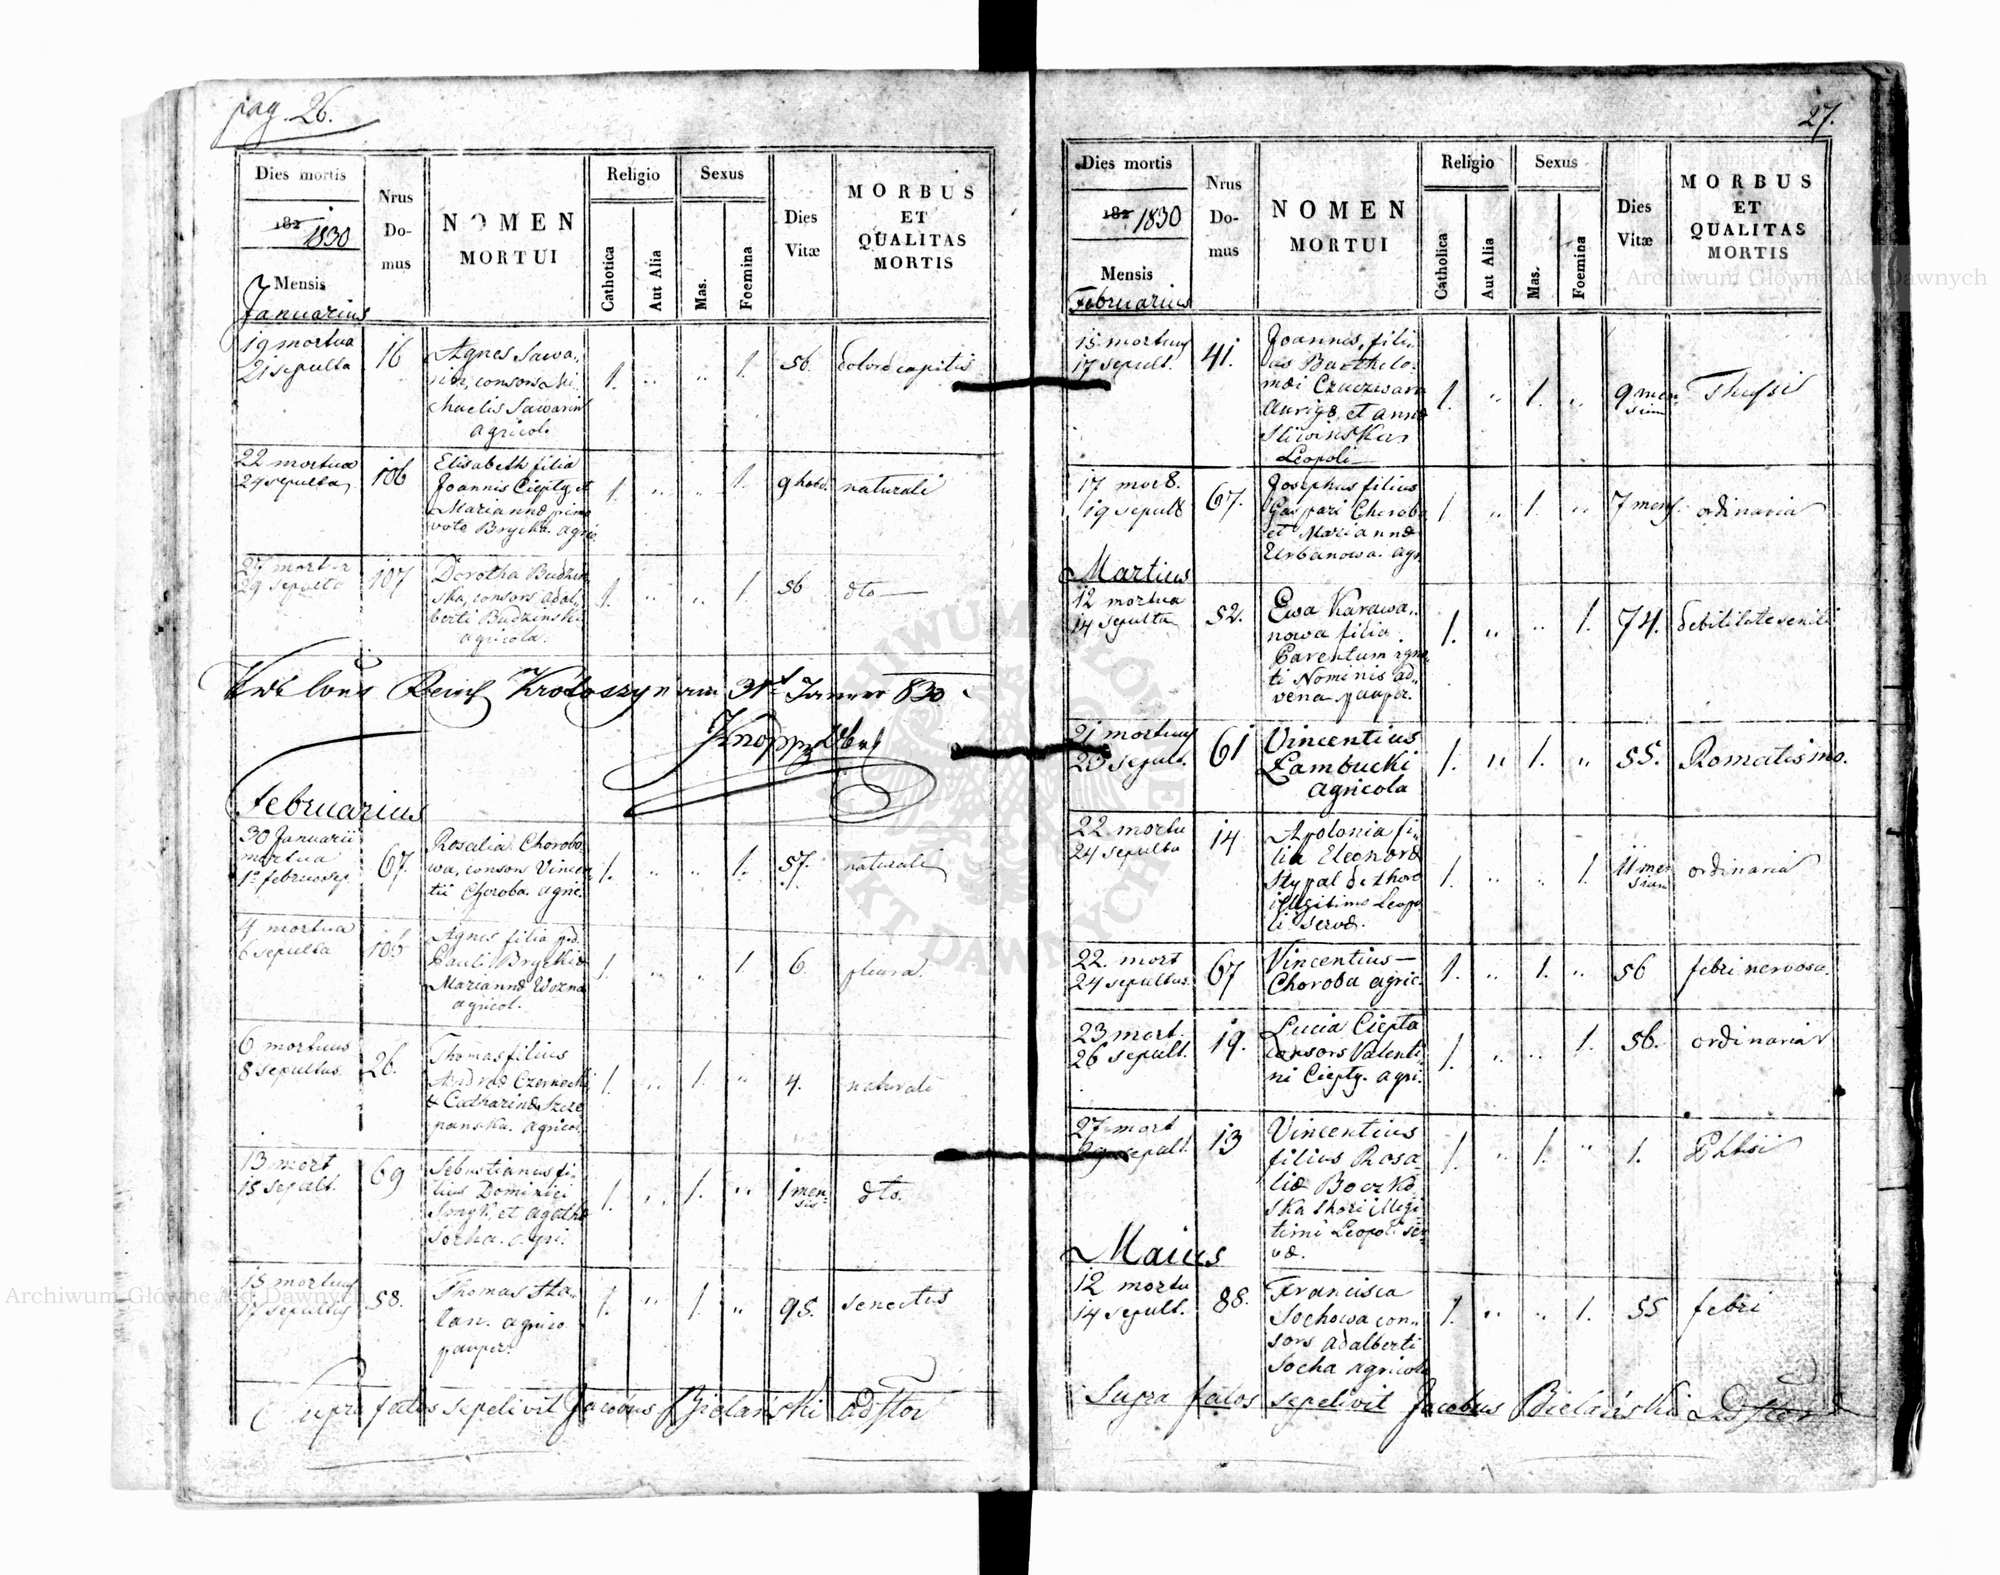 pag. 26.
Dies mortis
182 1830
Mensis
Januarius
Nrus
Do-
mus
NOMEN
MORTUI
Religio
Catholica
Aut Alia
Sexus
Mas.
Foemina
Dies
Vitæ
MORBUS
ET
QUALITAS
MORTIS
19 mortua
21 sepulta
16
Agnes Sawa„
rin, consors Mi„
chaelis Sawarin
agricol.
1. „ „ 1.
56.
dolore capitis
22 mortua
24 sepulta
106
Elisabeth filia
Joannis Ciepły et
Mariannæ primo
voto Brycha. agric.
1. „ „ 1.
9 hor.
naturali
27 mortua
29 sepulta
107
Dorotha Budzin
ska, consors Adal„
berti Budzinski
agricola.
1. „ „ 1.
56
dto
Krotoszyn am 31t Janner 830
Februarius
30 Januarii
mortua
1a februa sep.
67.
Rosalia Chorobo
wa, consors Vincen
tii Choroba. agric.
1. „ „ 1.
57.
naturali
4 mortua
6 sepulta
105
Agnes filia
Pauli Brycki &
Mariannæ Wozna
agricol.
1. „ „ 1.
6.
pleura.
6 mortuus
8 sepultus.
26.
Thomas filius
Andreæ Czernecki
& Catharinæ Szcze
panska. agricol.
1. „ 1. „
4.
naturali
13 mort
15 sepult.
69
Sebastianus fi„
lius Dominici
Smyk, et Agathæ
Socha. agri.
1. „ 1. „
1 men„
sis
dto.
15 mortuus
17 sepultus
58.
Thomas
agrico
pauper.
1. „ 1. „
95.
senectus
Supra fatos sepelivit Jacobus Bielański adstor
27.
Dies mortis
182 1830
Mensis
Februarius
Nrus
Do-
mus
NOMEN
MORTUI
Religio
Catholica
Aut Alia
Sexus
Mas.
Foemina
Dies
Vitæ
MORBUS
ET
QUALITAS
MORTIS
15 mortuus
17 sepult.
41.
Joannes, fili„
us Bartholo„
mæi
Aurigæ, et Annæ
Sliwinskær
Leopoli
1. „ 1. „
9 men„
sium
17 mort.
19 sepult
67.
Josephus filius
Gaspari Choroba
et Mariannæ
Urbanowa. agr.
1 „ 1. „
7 mens.
ordinaria
Martius
12 mortua
14 sepulta
52.
Ewa Karawa„
nowa filia
Parentum igno„
ti Nominis ad„
vena pauper.
1. „ „ 1.
74.
debilitate senili
21 mortuus
23 sepult.
61
Vincentius
Lambucki
agricola
1. „ 1. „
55.
Romatismo.
22 mortu
24 sepulta
14
Apolonia fi„
lia Eleonoræ
Stypal de thoro
illegitimo Leopo
li servæ.
1. „ „ 1.
11 men
sium
ordinaria
22. mort
24 sepultus.
67
Vincentius
Choroba agric.
1. „ 1. „
56
febri nervosa.
23 mort.
26 sepult.
19.
Lucia Ciepła
consors Valenti
ni Ciepły. agri.
1. „ „ 1.
56.
ordinaria
27 mort
29 sepult.
13
Vincentius
filius Rosa„
liæ Boczko
ska thori illegi
timi Leopol. ser„
væ.
1. „ 1. „
1.
Phtisi
Maius
12 mortu
14 sepult.
88.
Francisca
Sochowa con„
sors Adalberti
Socha agricola
1. „ „ 1.
55
febri
Supra fatos sepelivit Jacobus Bielański Adstor
Archiwum Główne Akt Dawnych
Archiwum Główne Akt Dawnych
ARCHIWUM GŁÓWNE
AKT DAWNYCH